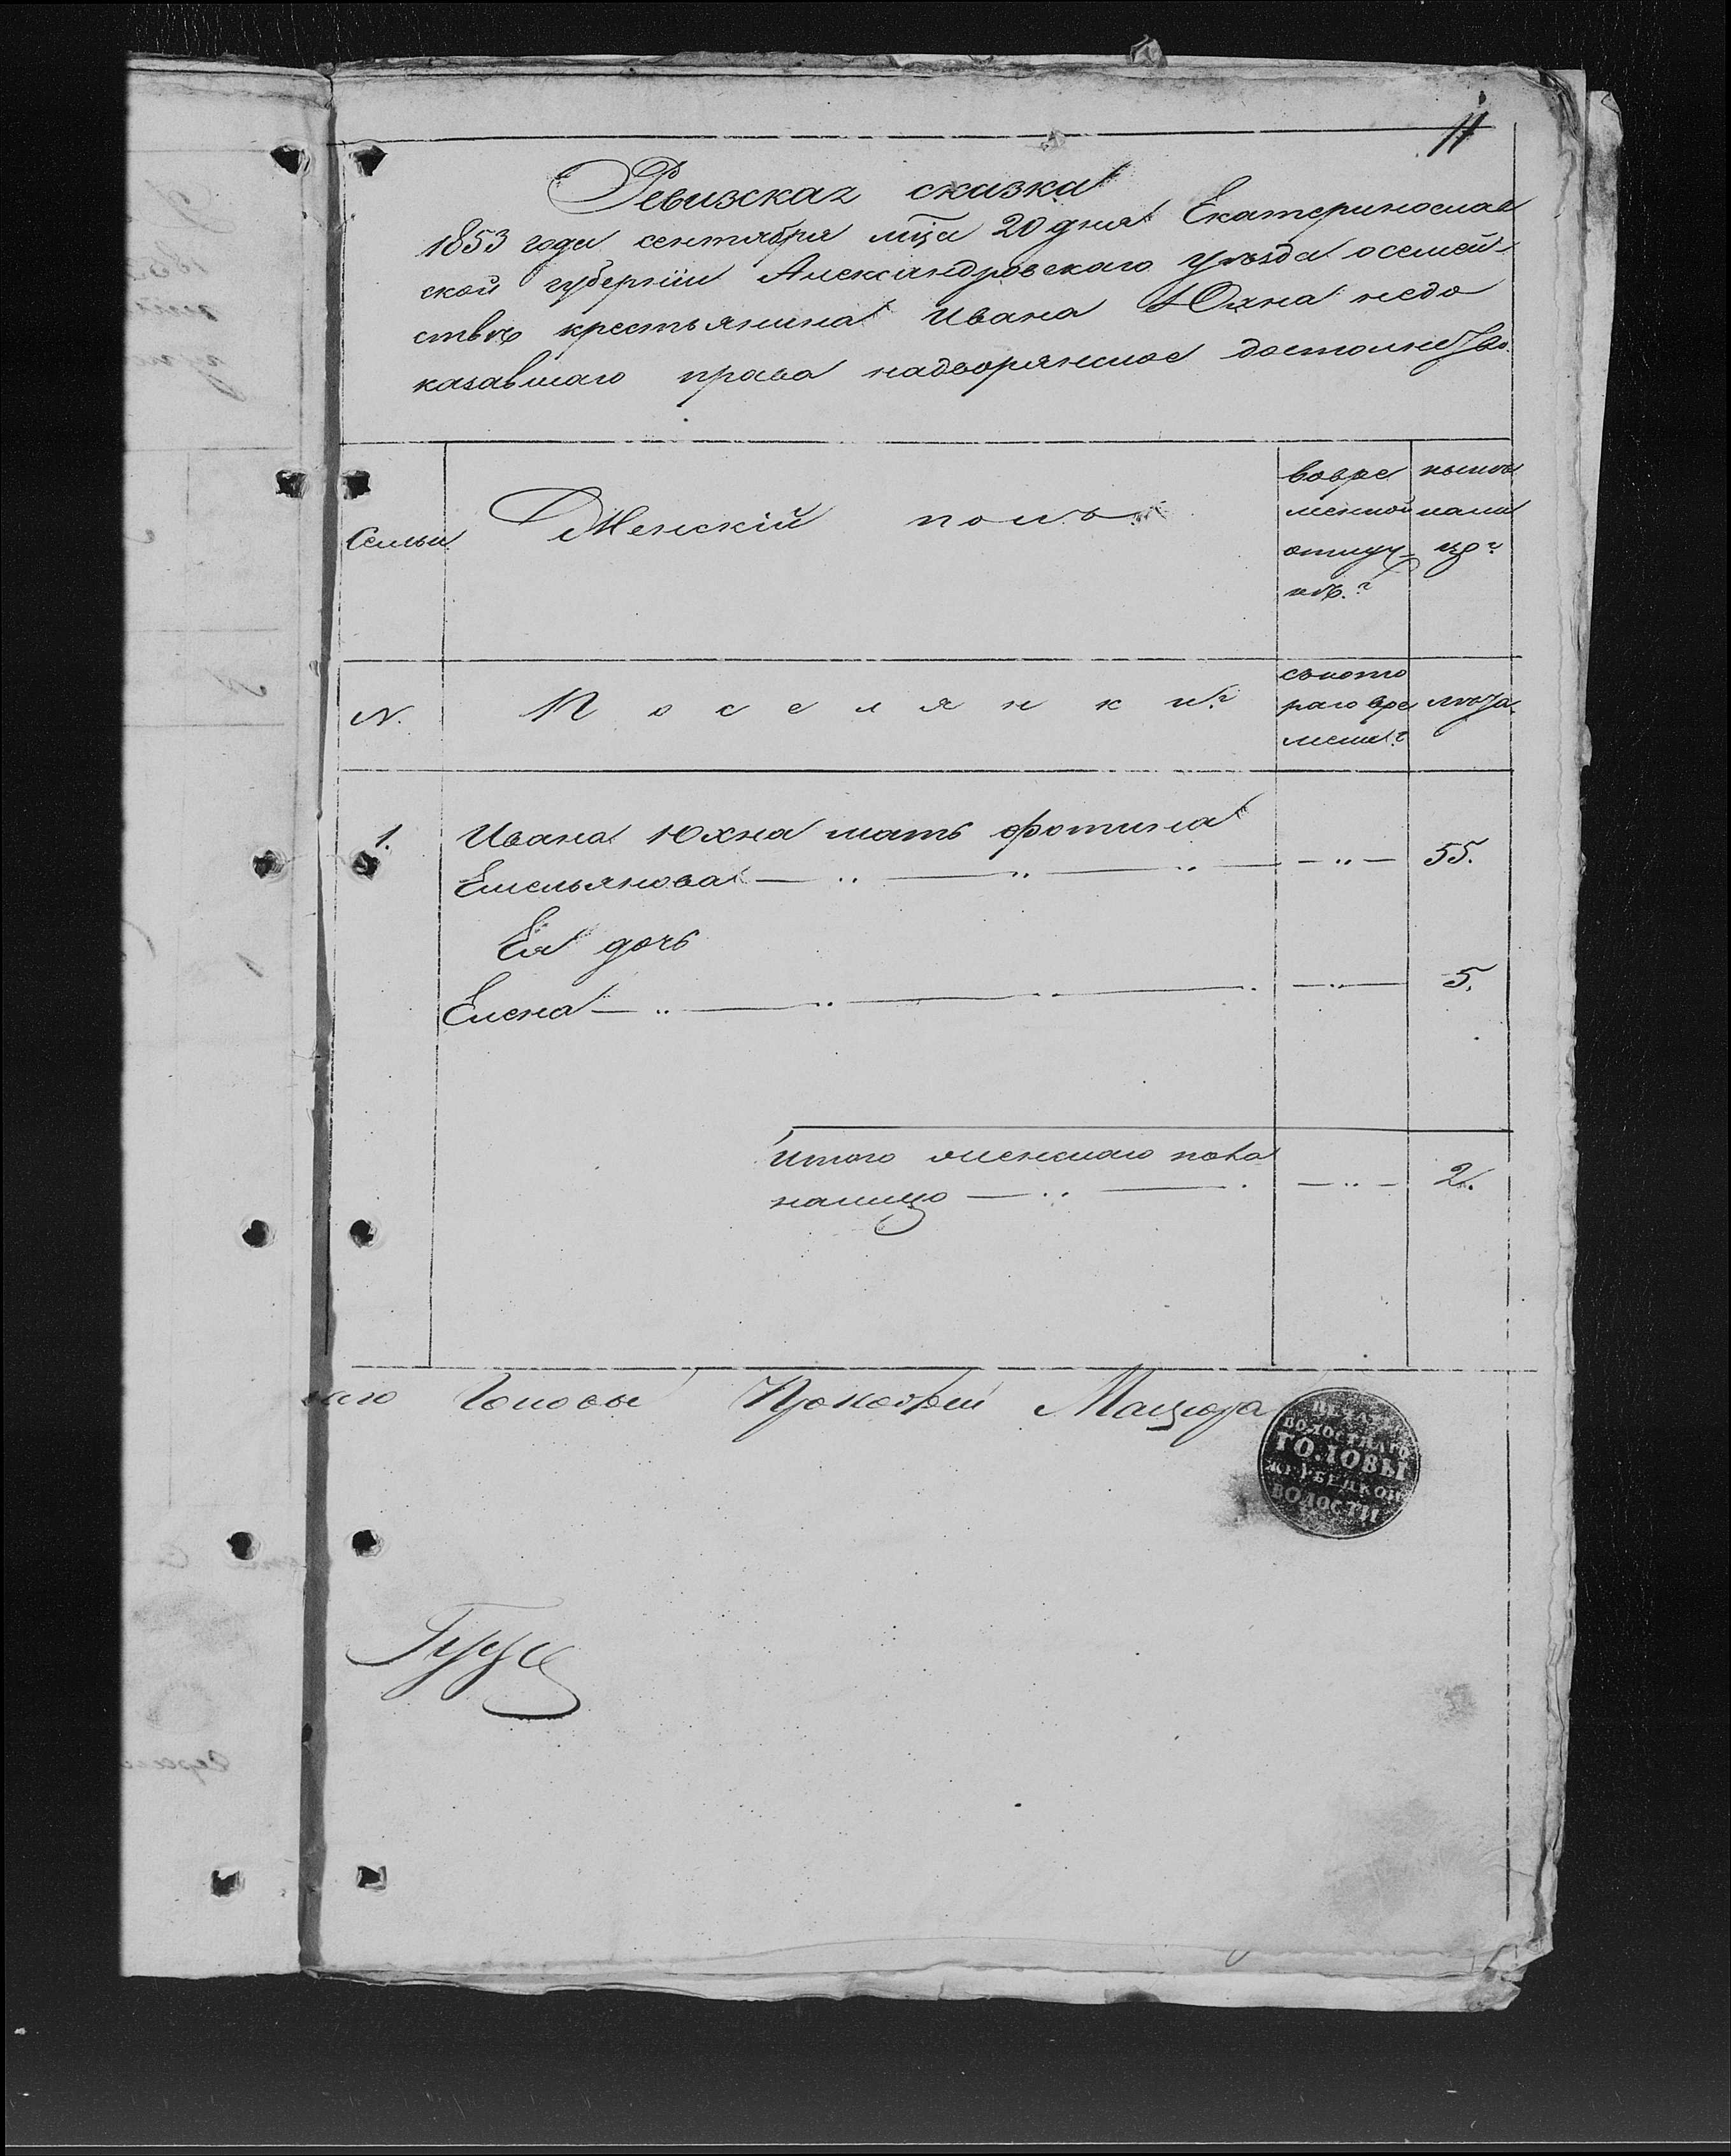 11
Ревизская сказка
1853 года сентября мца 20 дня Екатеринослав
ской губернiи Александровскаго уѣзда о семей
ствѣ крестьянина Ивана Юхна недо
казавшаго права надворянское достоинство.
Семьи
Женскiй полъ
вовре
менной
отлуч-
кѣ.
нынѣ
нали
цо
N.
Поселянки
съкото
раго вре
мени
лѣта.
1. Ивана Юхна мать Фотина
Емельянова — 〃 — 〃 — 〃 — 〃 — 55.
Ея дочь
Елена — 〃 — 〃 — 〃 — 5.
Итого женскаго пола
налицо — 〃 — 〃 — 2.
наго Головы Прокофiй Мацюра
ПЕЧАТЬ
ВОЛОСТНАГО
ГОЛОВЫ
ЖЕРЕБЕЦКОЙ
ВОЛОСТИ